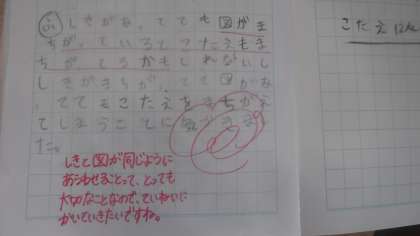 ㋫しきがな、ても図がま
ちが、ているとこたえもま
ちが、てるかもしれないし
しきがまちが、てて図がな
、ててもこたえをまちがえ
てしまうことに気づきまし
た。
しきと図が同じように
あらわせることって、とっても
大切なことなので、ていねいに
かいていきたいですね。
こたえ12人